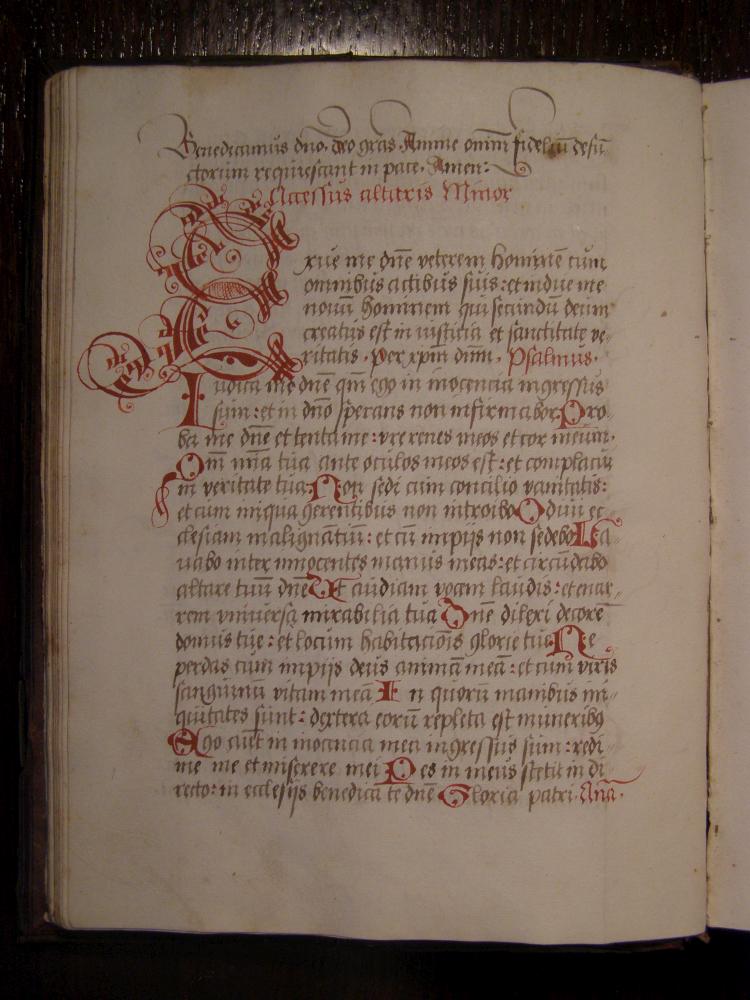 Benedicamus dño. deo gras. Anime omniũ fideliũ defũ
ctorum requiescant in pace. Amen:
Accessus altaris Minor
Exue me dñe veterem hominẽ cum
omnibus actibus suis: et indue me
nouũ hominem qui secundũ deum
creatus est in iusticia et sanctitate ve
ritatis. Per xpm dñm. Psalmus.
Iudica me dñe qm̃ ego in inocencia ingressus
sum: et in dño sperans non infirmabor Pro
ba me dñe et tenta me: vre renes meos et cor meum.
Qm̃ mĩa tua ante oculos meos est: et complacui
in veritate tua Non sedi cum concilio vanitatis:
et cum iniqua gerentibus non introibo Odiui ec
clesiam malignãtiũ: et cũ impijs non sedebo La
uabo inter innocentes manus meas: et circũdabo
altare tuũ dñe Vt audiam vocem laudis: et enar
rem vniuersa mirabilia tua Dñe dilexi decorẽ
domus tue: et locum habitacõis glorie tue Ne
perdas cum impijs deus animã meã: et cum viris
sanguinũ vitam meã In quorũ manibus ini
quitates sunt: dextera eorũ repleta est muneribȝ
Ego aũt in inocencia mea ingressus sum: redi
me me et miserere mei Pes ĩn meus stetit in di
recto: in ecclesijs benedicã te dñe Gloria patri. Aña.